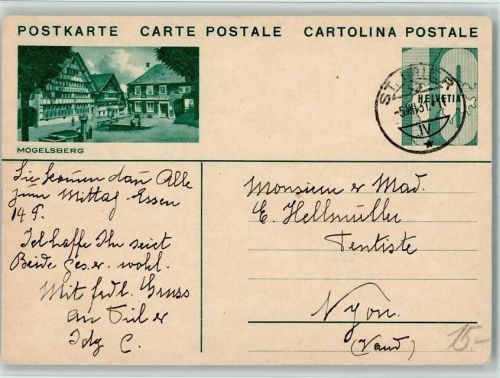 POSTKARTE CARTE POSTALE CARTOLINA POSTALE
MOGELSBERG
HELVETIA
IV
Sie kommen dann Alle
zum Mittag-Essen
14 P.
Ich hoffe Ihr seid
Beide Ges. er. wohl.
Mit frdl. Gruss
an
C.
Monsieur et Mad.
E. Hellmüller
Dentiste
Nyon.
(Vaud)
15-